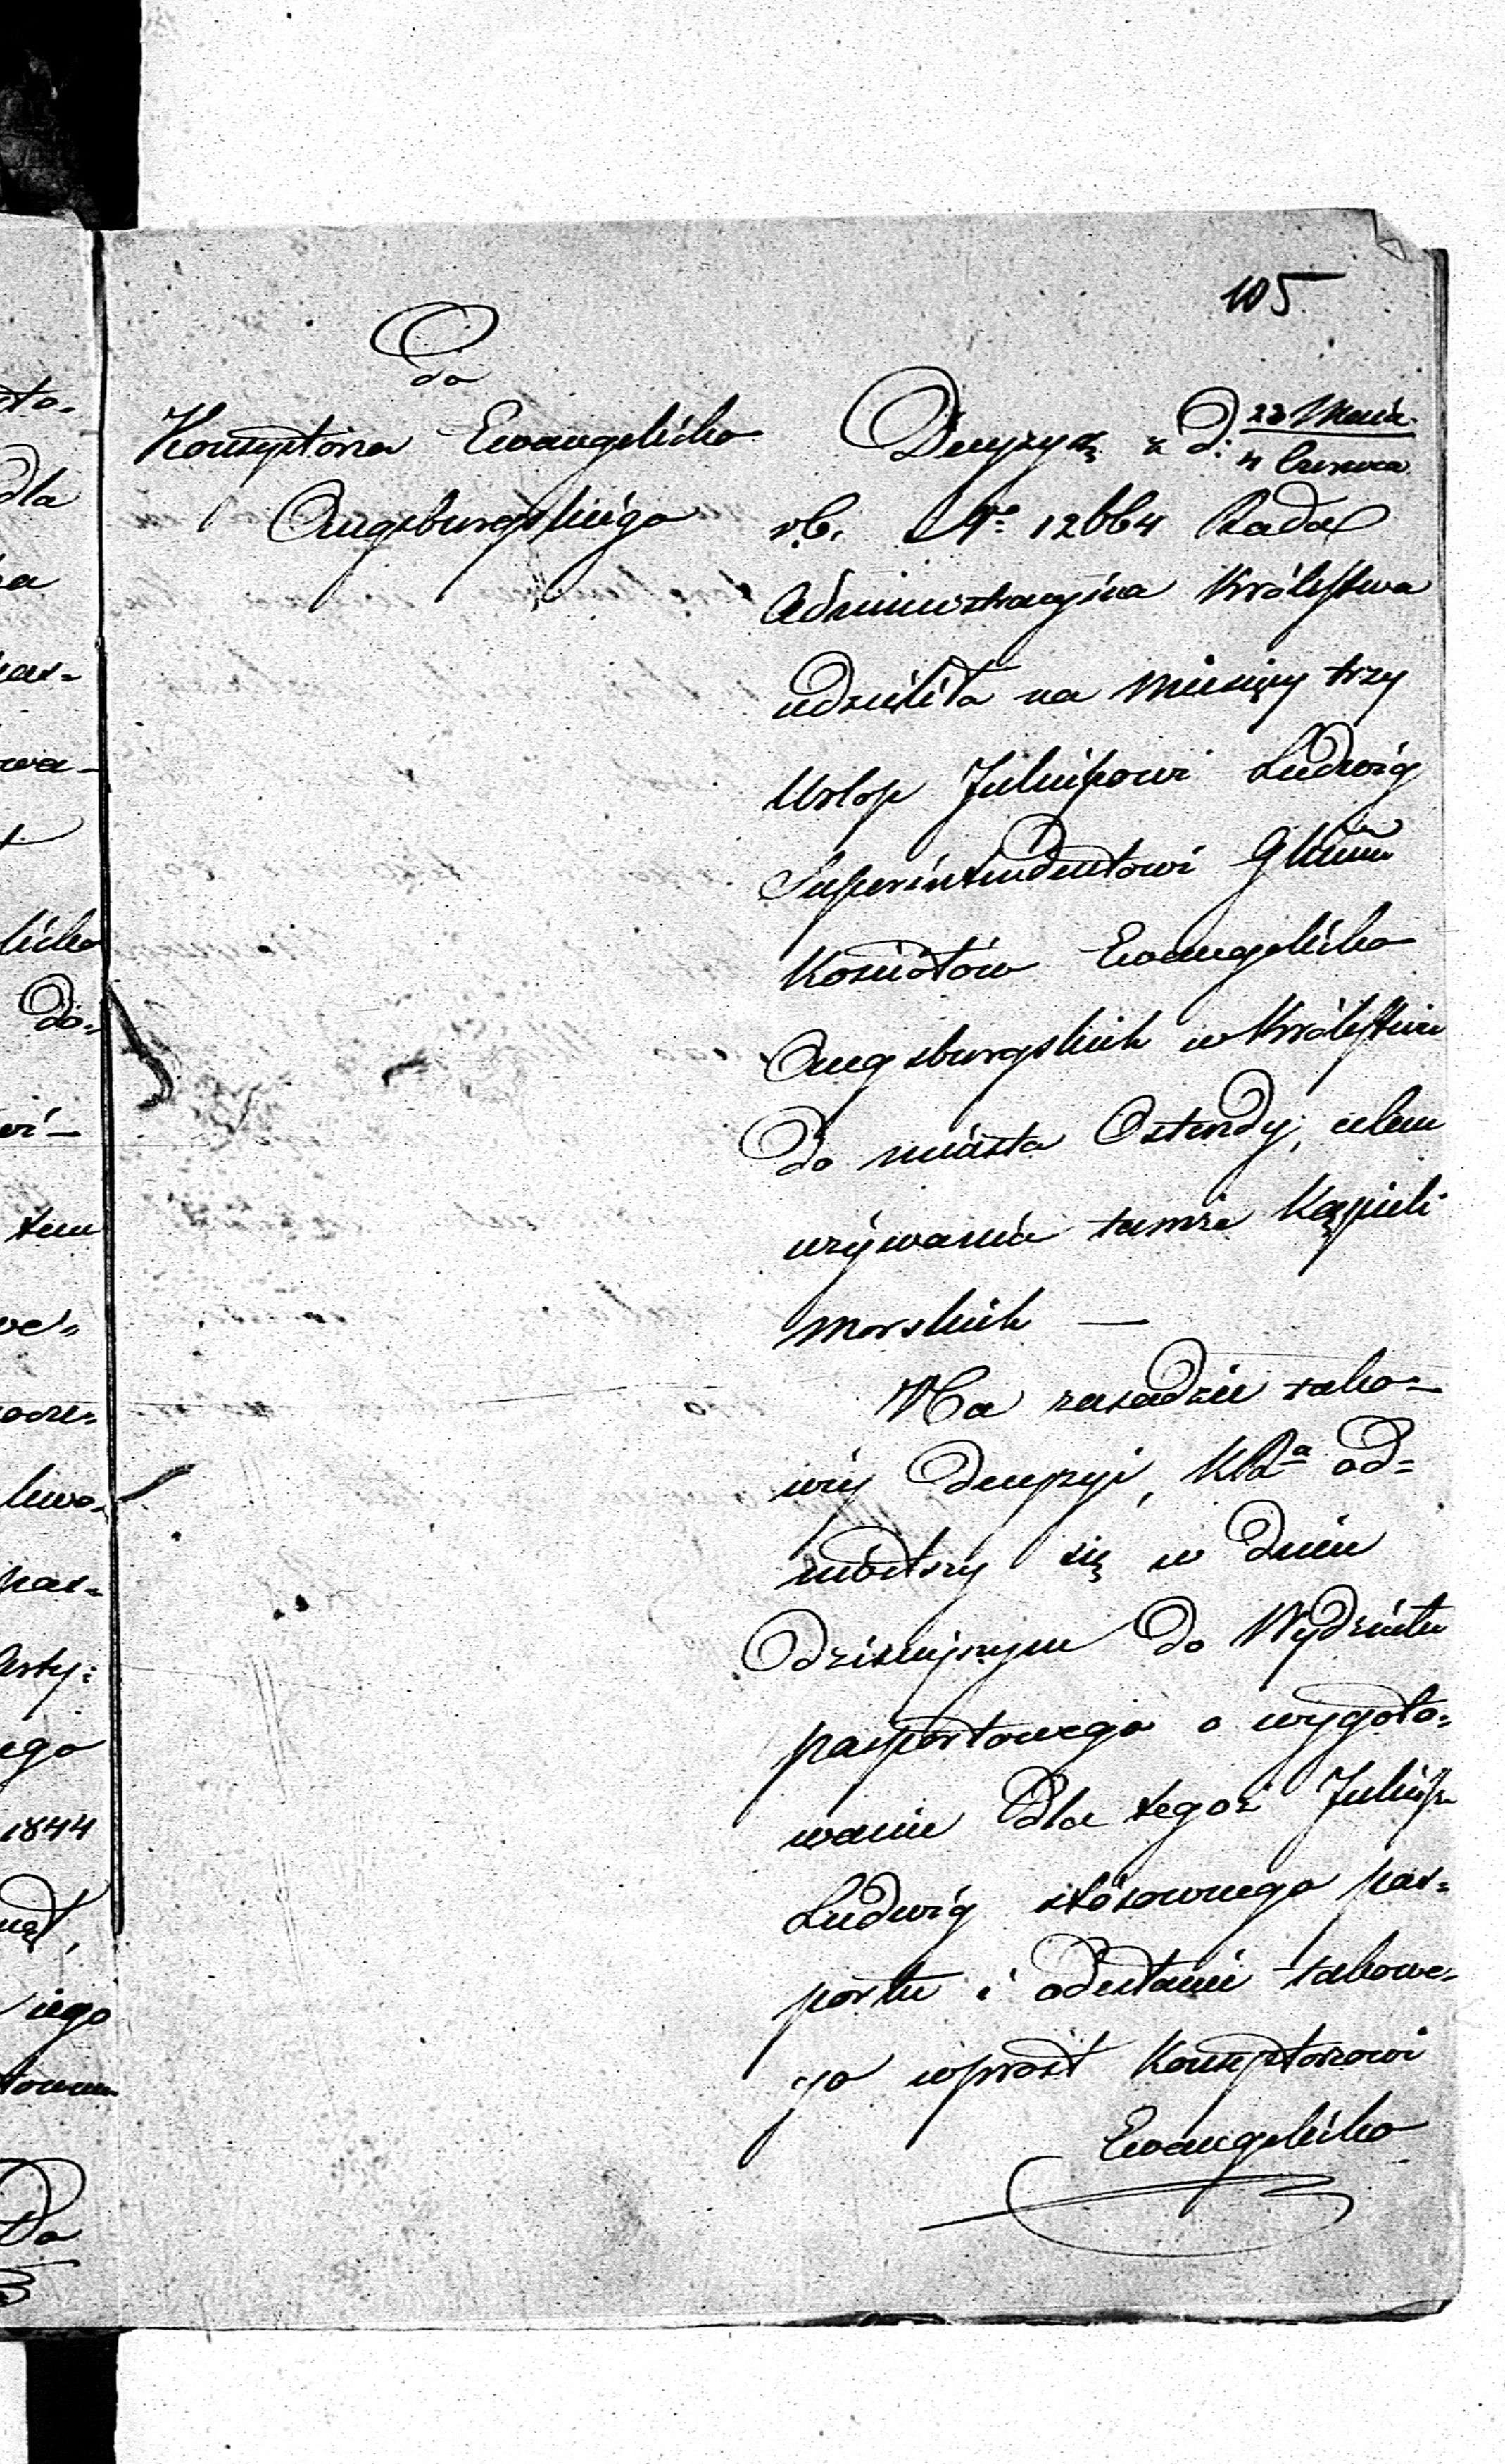 105
Do
Konsystorza Ewangelicko
Augsburgskiégo
Decyzyą z d: 23 Maia / 4 Czerwca
r.b. No 12664 Rada
Administracyina Królestwa
udzieliła na Miesięcy trzy
Urlop Juliuszowi Ludwig
Superintendentowi Głównu
Kościołów Ewangelicko
Augsburgskich w Królestwie
do miasta Ostendy, celem
używania tamże Kąpieli
morskich —
Na zasadzie tako-
wéj decyzyi, KRa od=
niósłszy się w dniu
dzisiejszym do Wydziału
pasportowego o wygoto=
wanie dla tegoż Juliusza
Ludwig stósownego pas=
portu i odesłanie takowe=
go wprost Konsystorzowi
Ewangelicko
dla
licko
do=
tem
pas=
ego
1844
iego
Do